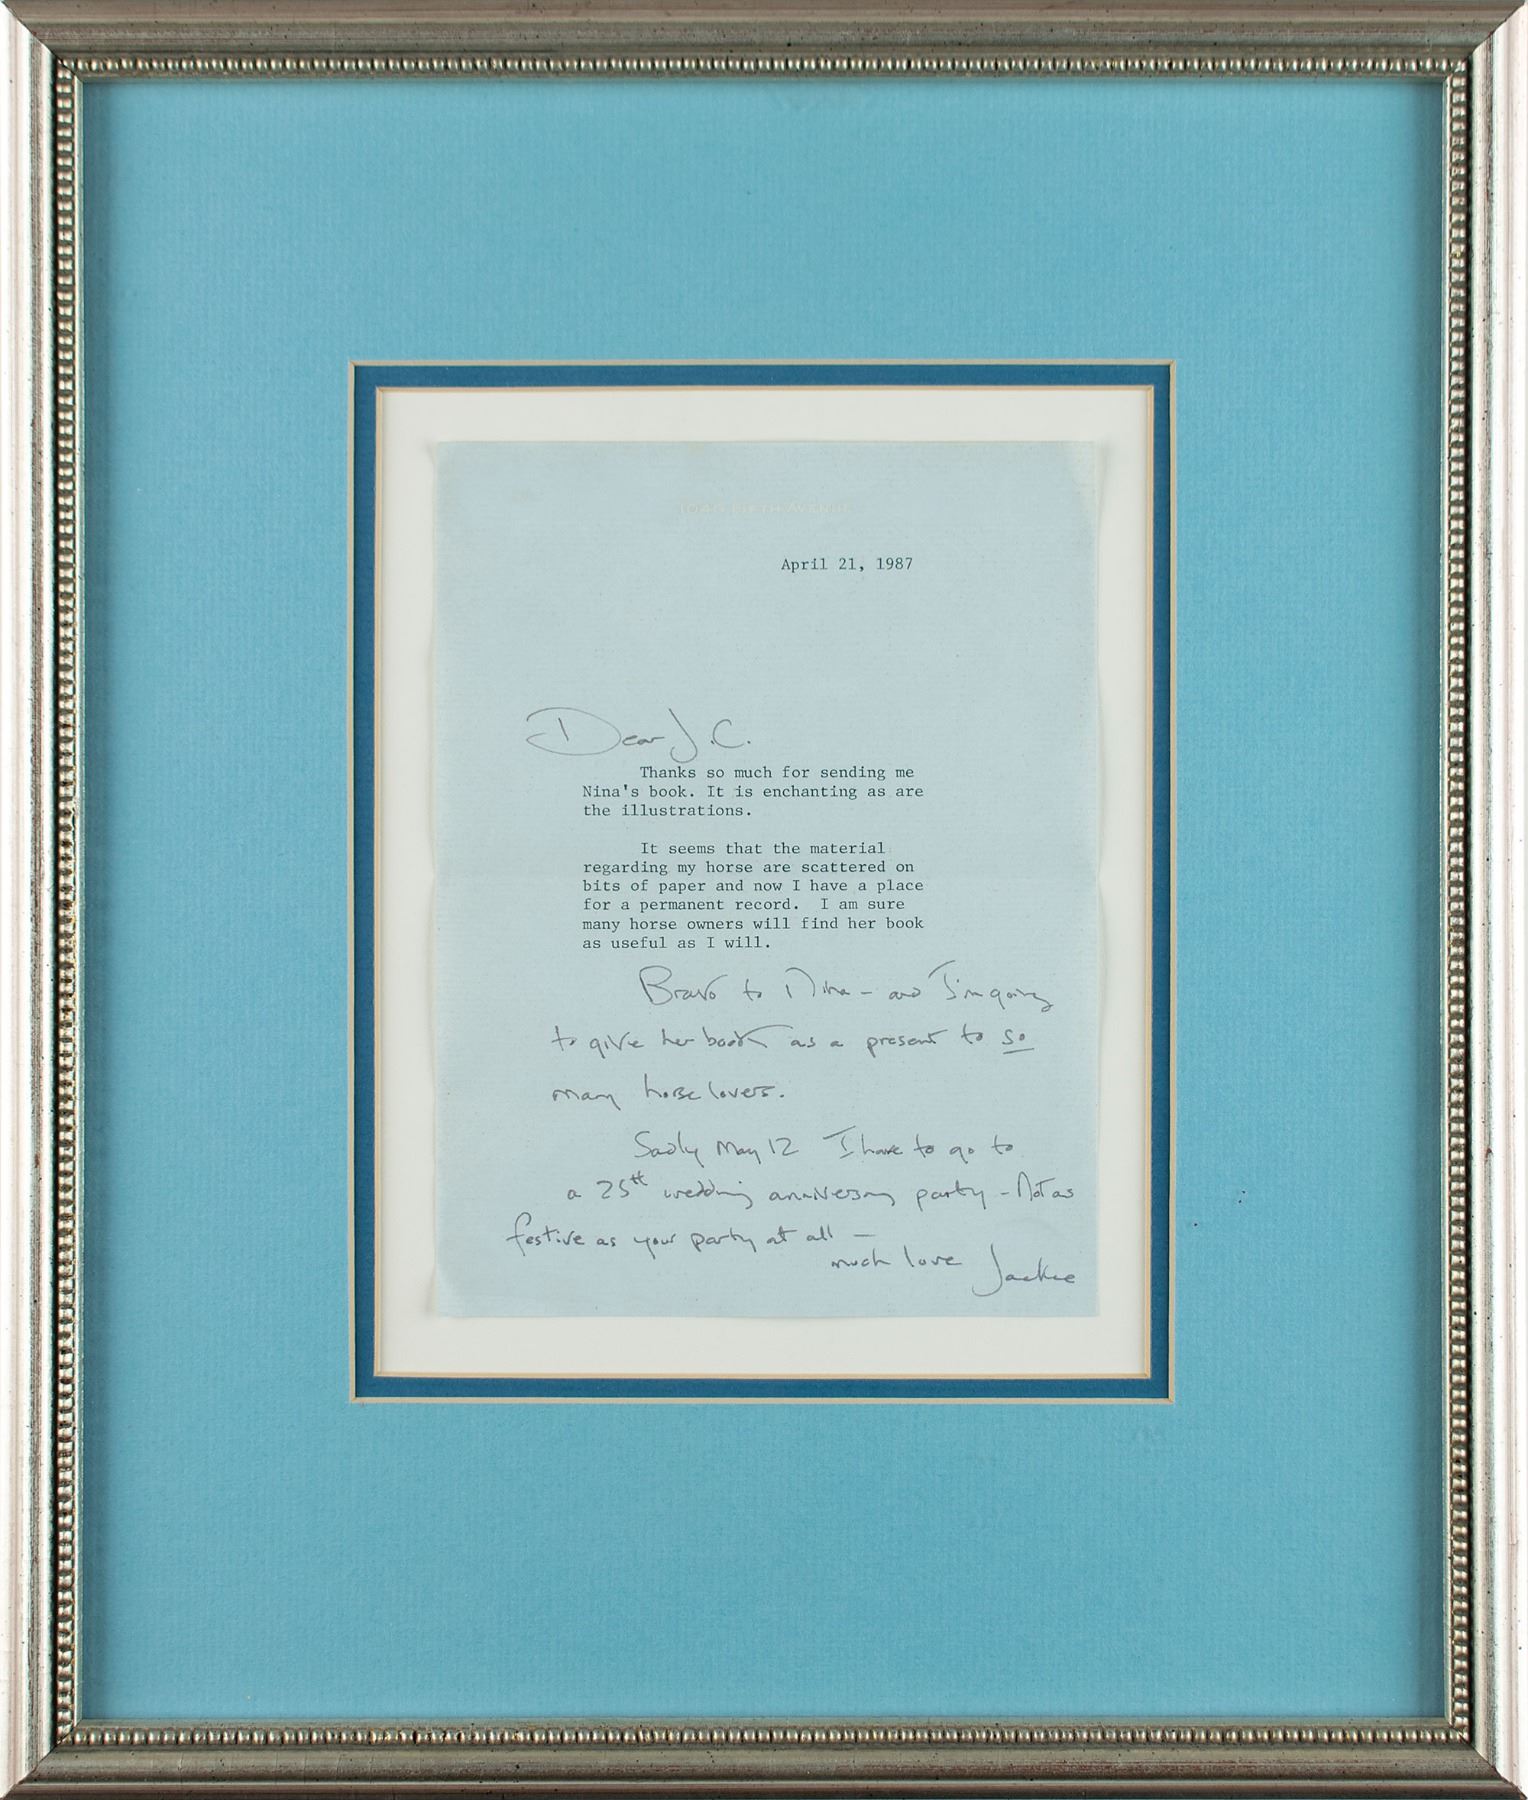 1040 FIFTH AVENUE
April 21, 1987
Dear J.C.
Thanks so much for sending me
Nina's book. It is enchanting as are
the illustrations.
It seems that the material
regarding my horse are scattered on
bits of paper and now I have a place
for a permanent record. I am sure
many horse owners will find her book
as useful as I will.
Bravo to Nina – and I'm going
to give her book as a present to so
many horse lovers.
Sadly May 12 I have to go to
a 25th wedding anniversary party – Not as
festive as your party at all –
much love Jackie